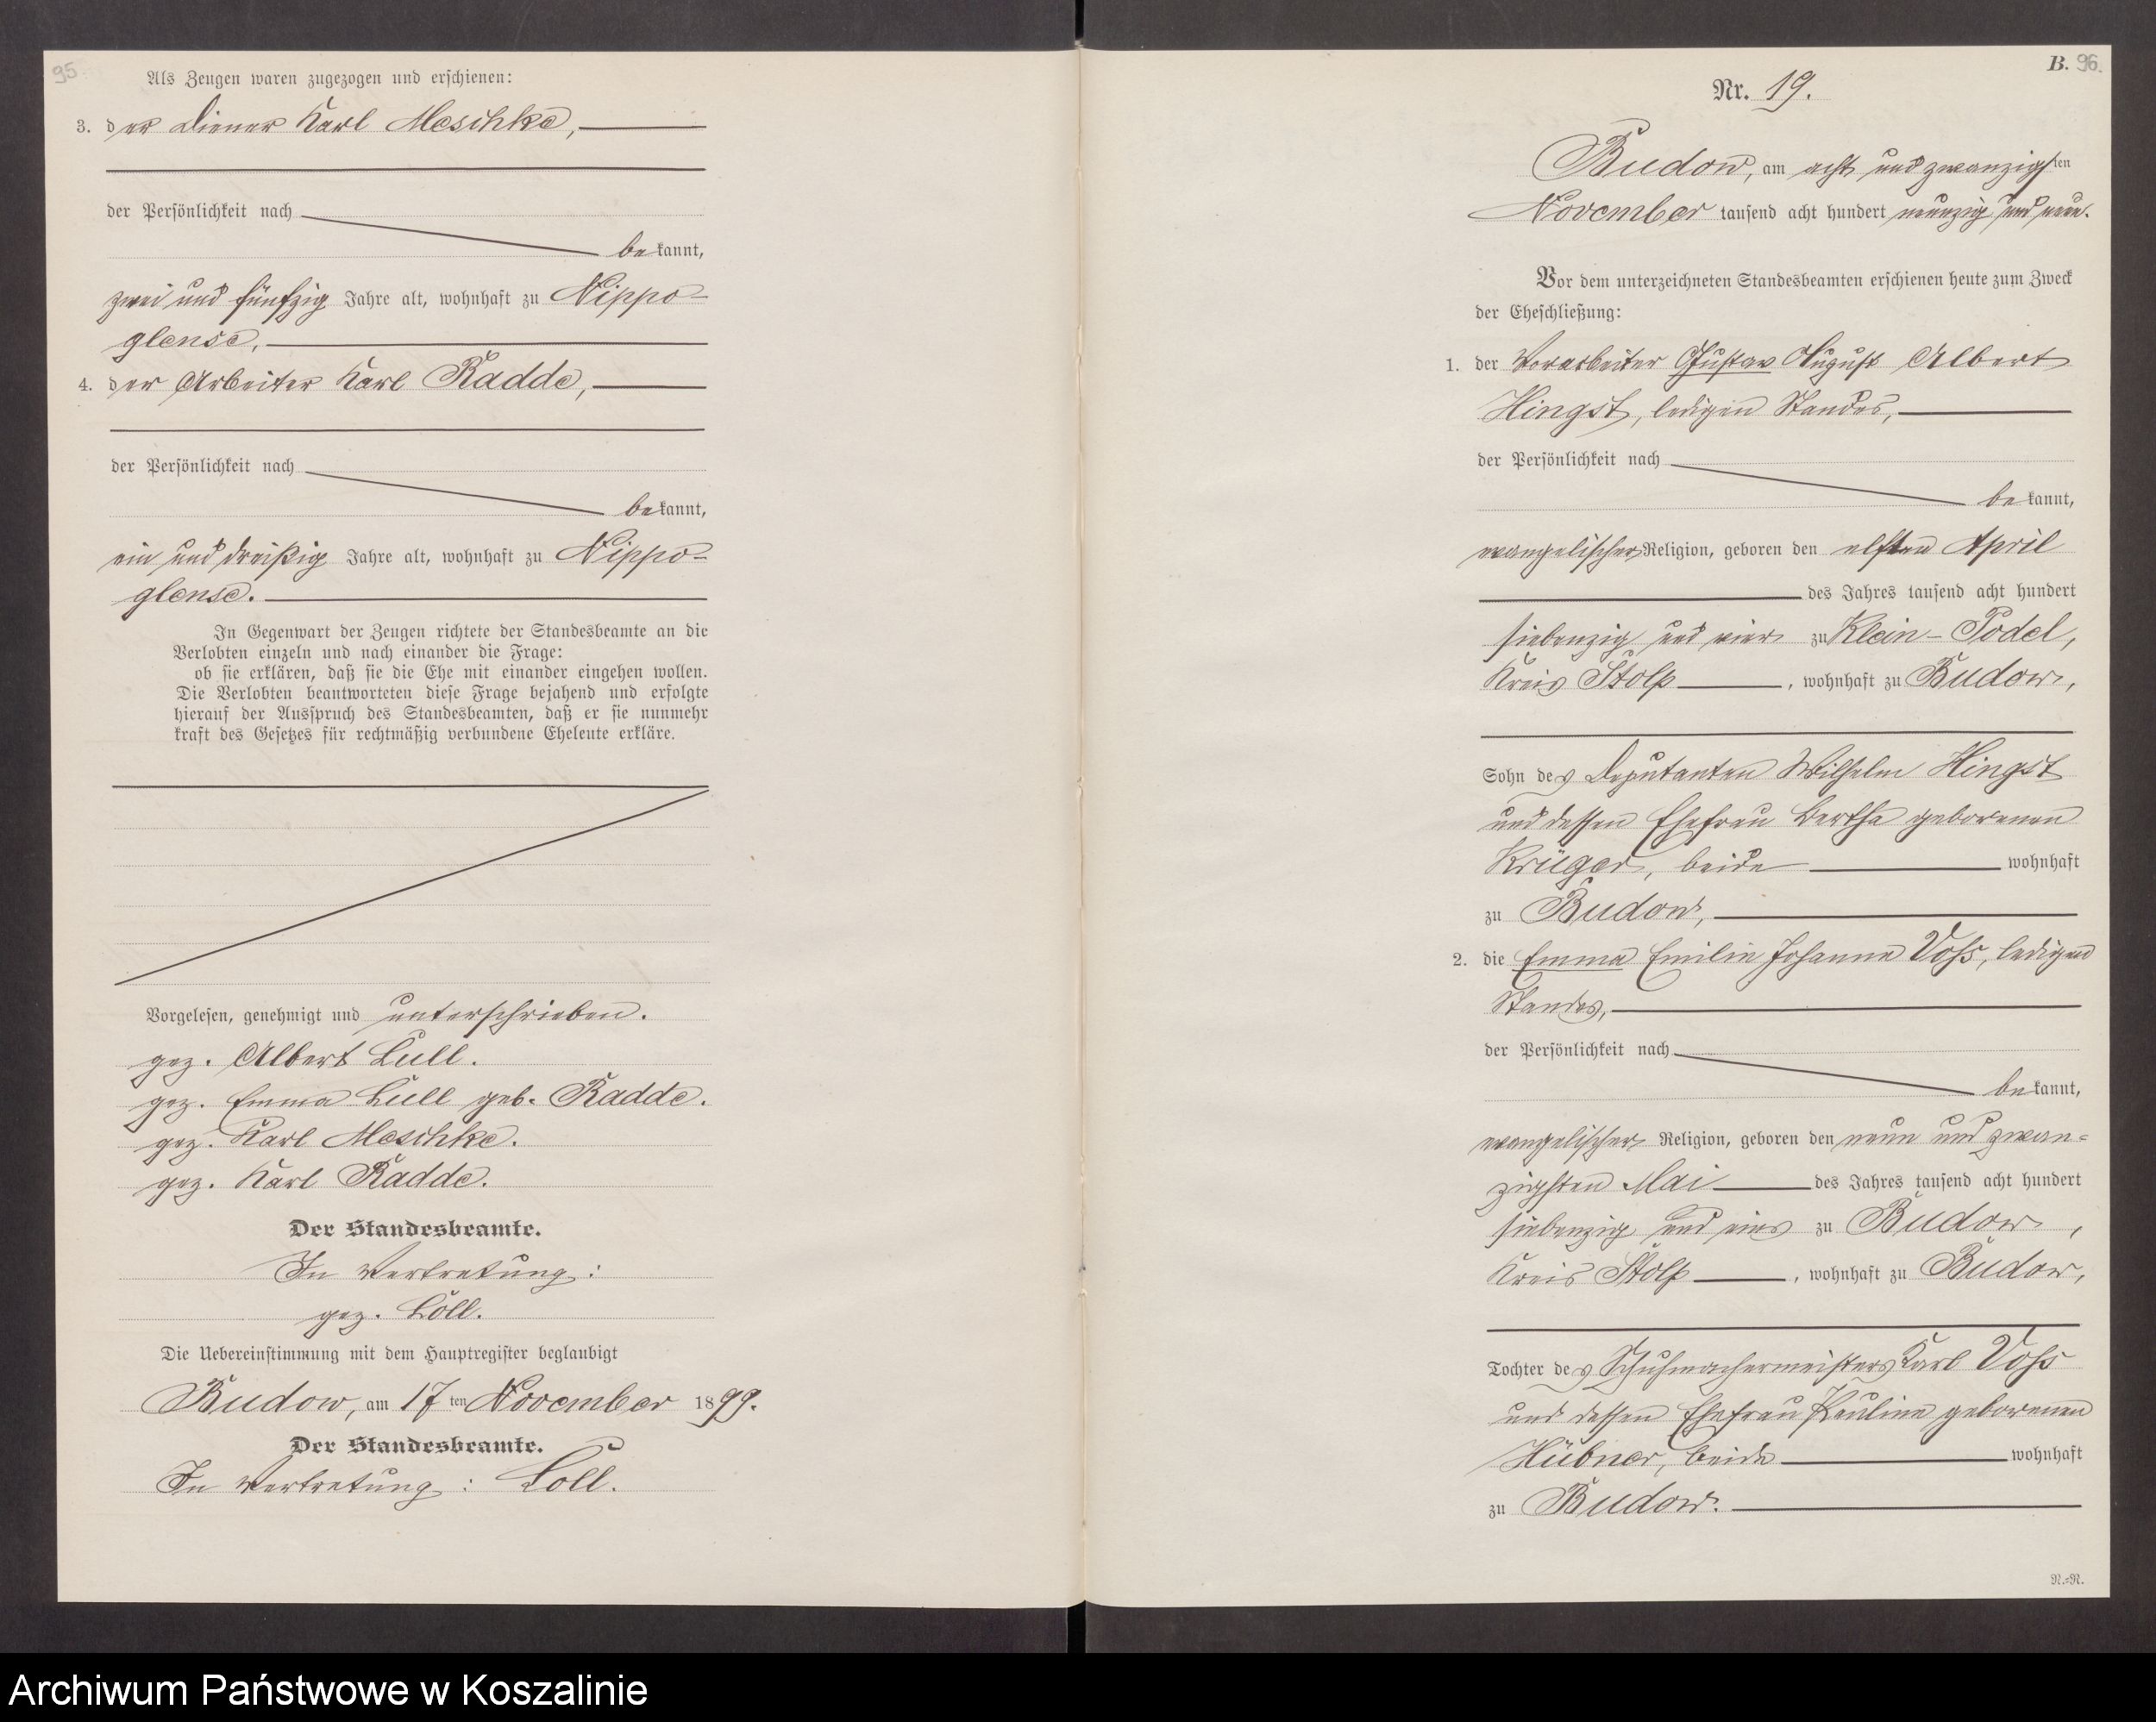 95
Als Zeugen waren zugezogen und erschienen:
3. der Diener Karl Meschke,
der Persönlichkeit nach
bekannt,
zwei und fünfzig Jahre alt, wohnhaft zu Nippo-
glense,
4. der Arbeiter Karl Radde,
der Persönlichkeit nach
bekannt,
ein und dreißig Jahre alt, wohnhaft zu Nippo-
glense.
In Gegenwart der Zeugen richtete der Standesbeamte an die
Verlobten einzeln und nach einander die Frage:
ob sie erklären, daß sie die Ehe mit einander eingehen wollen.
Die Verlobten beantworteten diese Frage bejahend und erfolgte
hierauf der Ausspruch des Standesbeamten, daß er sie nunmehr
kraft des Gesetzes für rechtmäßig verbundene Eheleute erkläre.
Vorgelesen, genehmigt und unterschrieben.
gez. Albert Lüll.
gez. Emma Lüll geb. Radde.
gez. Karl Meschke.
gez. Karl Radde.
Der Standesbeamte.
In Vertretung:
gez. Löll.
Die Uebereinstimmung mit dem Hauptregister beglaubigt
Budow, am 17ten November 1899.
Der Standesbeamte.
In Vertretung: Löll.
B. 96.
Nr. 19.
Budow, am acht und zwanzigsten
November tausend acht hundert neunzig und neun.
Vor dem unterzeichneten Standesbeamten erschienen heute zum Zweck
der Eheschließung:
1. der Vorarbeiter Gustav August Albert
Hingst, ledigen Standes,
der Persönlichkeit nach
bekannt,
evangelischer Religion, geboren den elften April
des Jahres tausend acht hundert
siebenzig und vier zu Klein-Podel,
Kreis Stolp, wohnhaft zu Budow,
Sohn des Deputanten Wilhelm Hingst
und dessen Ehefrau Bertha geborenen
Krüger, beide wohnhaft
zu Budow,
2. die Emma Emilie Johanne Voß, ledigen
Standes,
der Persönlichkeit nach
bekannt,
evangelischer Religion, geboren den neun und zwan-
zigsten Mai des Jahres tausend acht hundert
siebenzig und eins zu Budow,
Kreis Stolp, wohnhaft zu Budow,
Tochter des Schuhmachermeisters Karl Voß
und dessen Ehefrau Pauline geborenen
Hübner, beide wohnhaft
zu Budow.
N.=N.
Archiwum Państwowe w Koszalinie